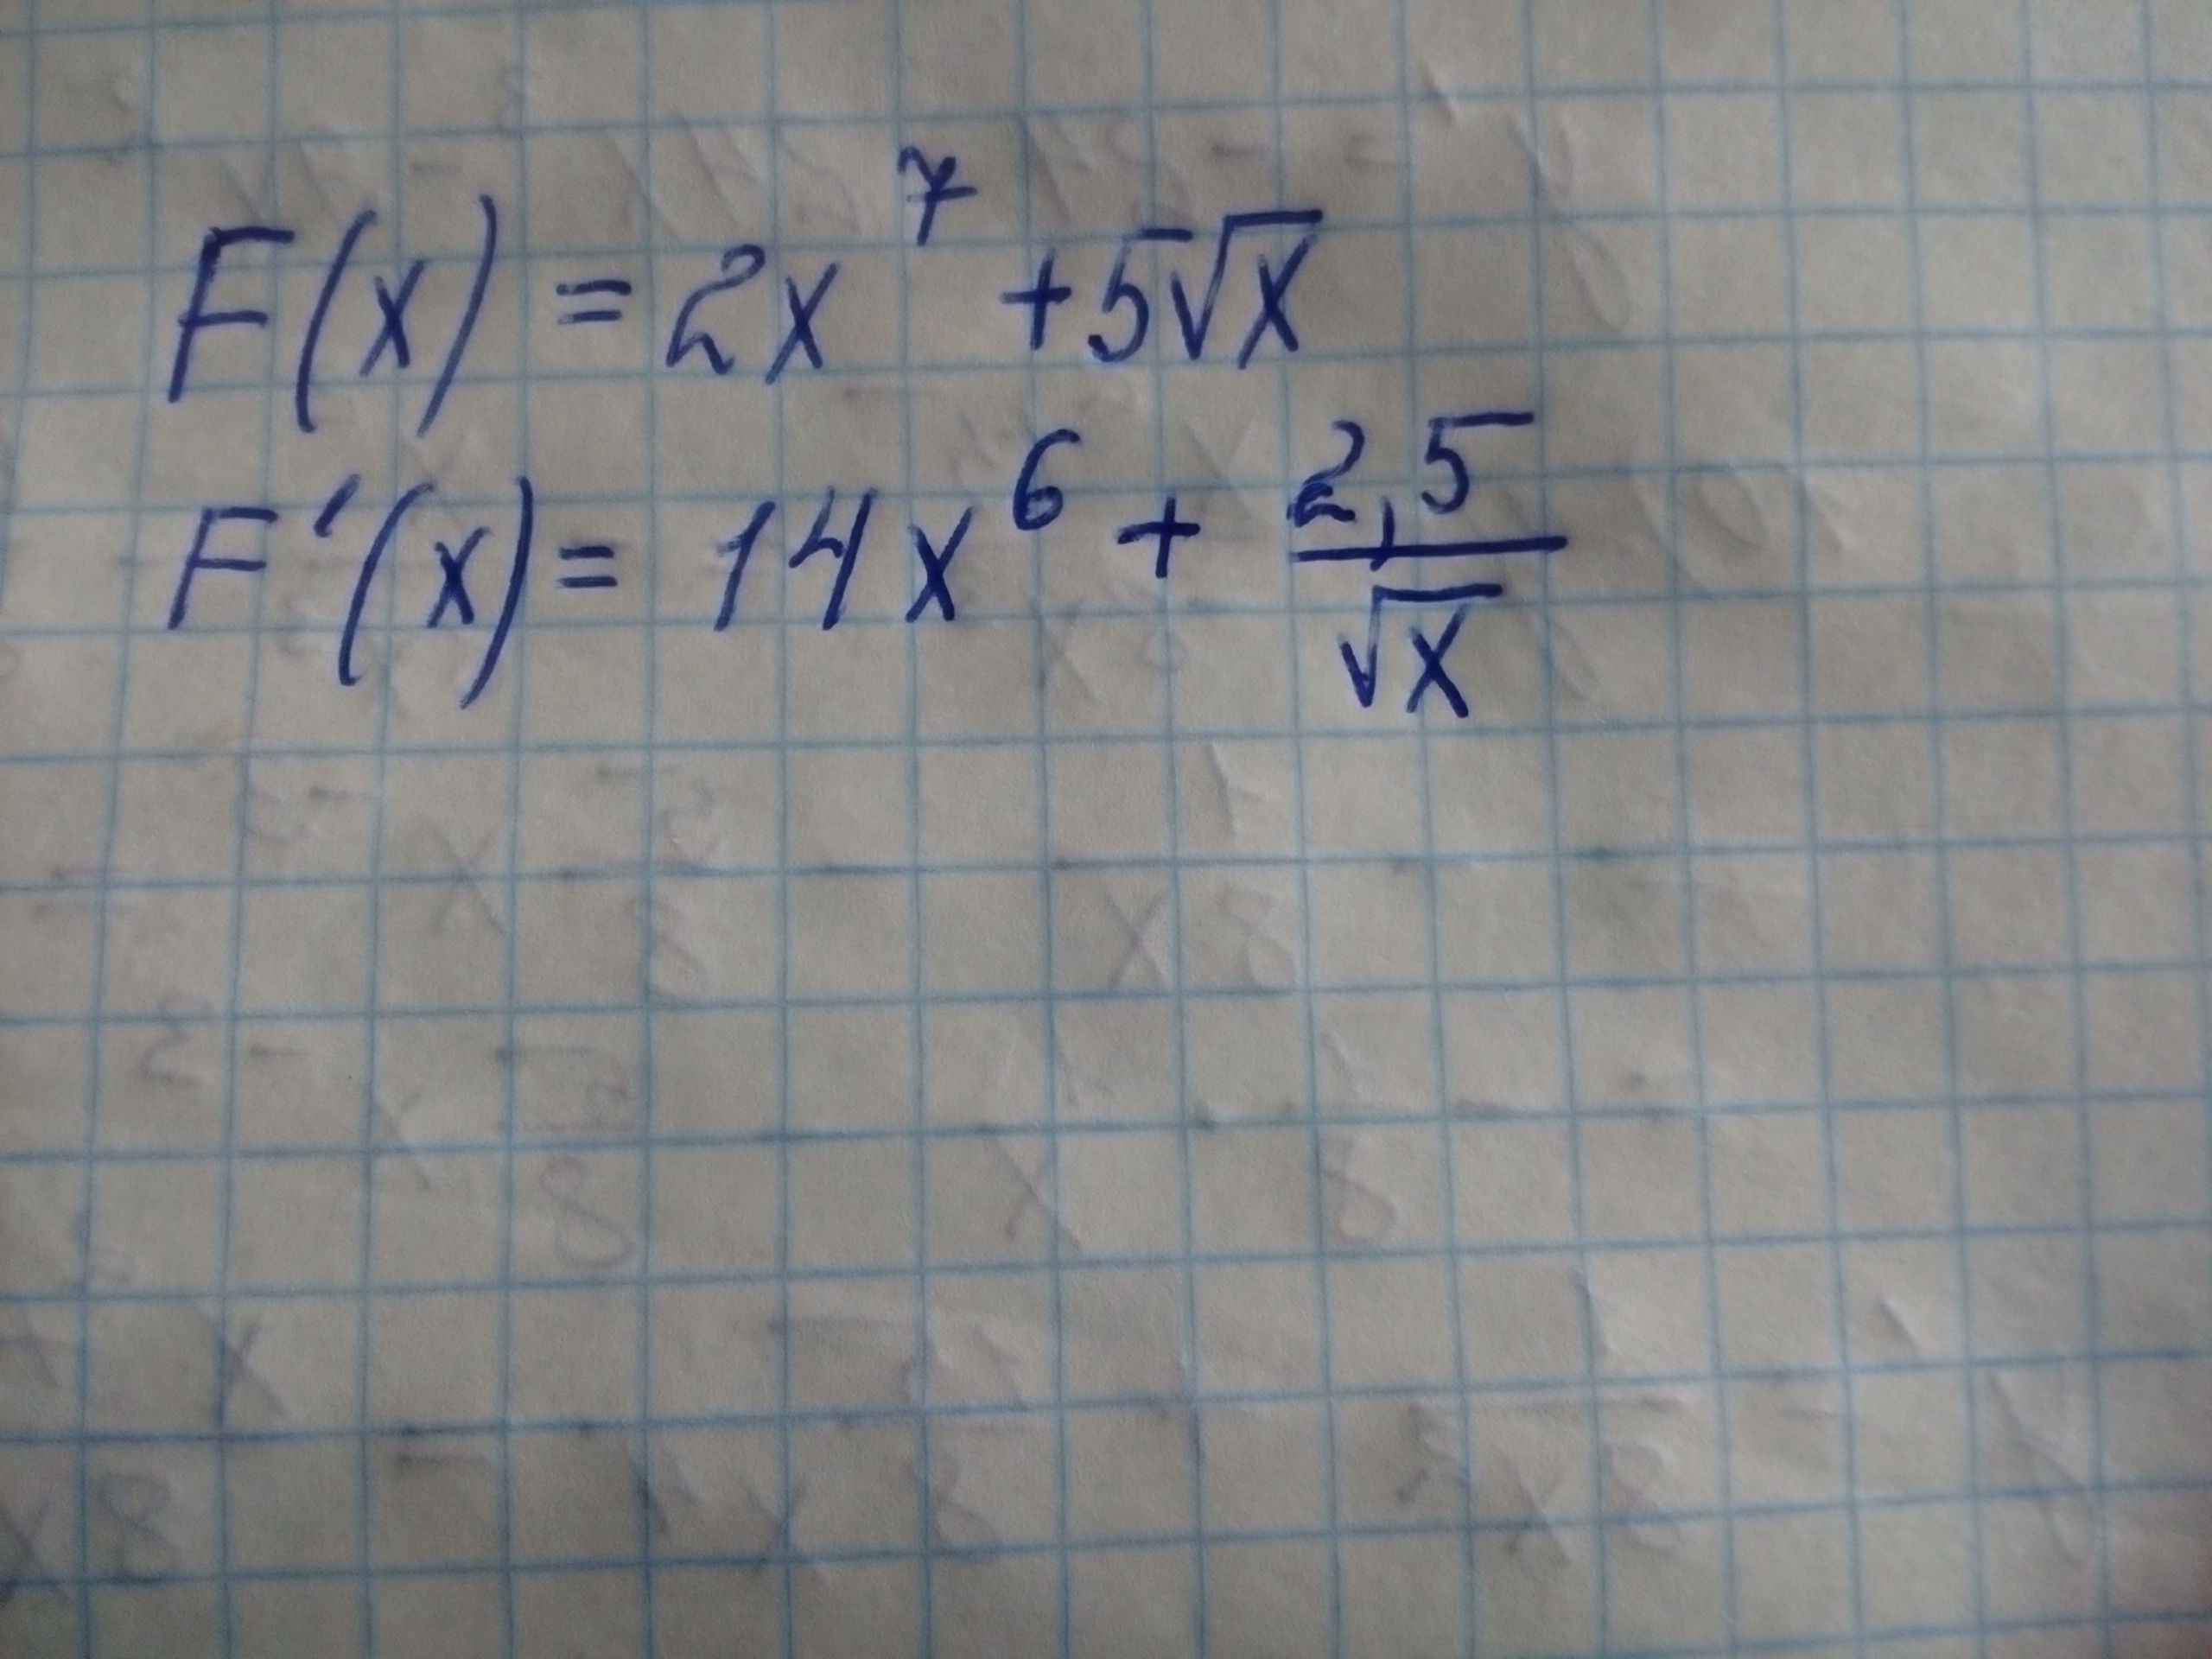 F(x) = 2x⁷ + 5√x
F'(x) = 14x⁶ + 2,5/√x